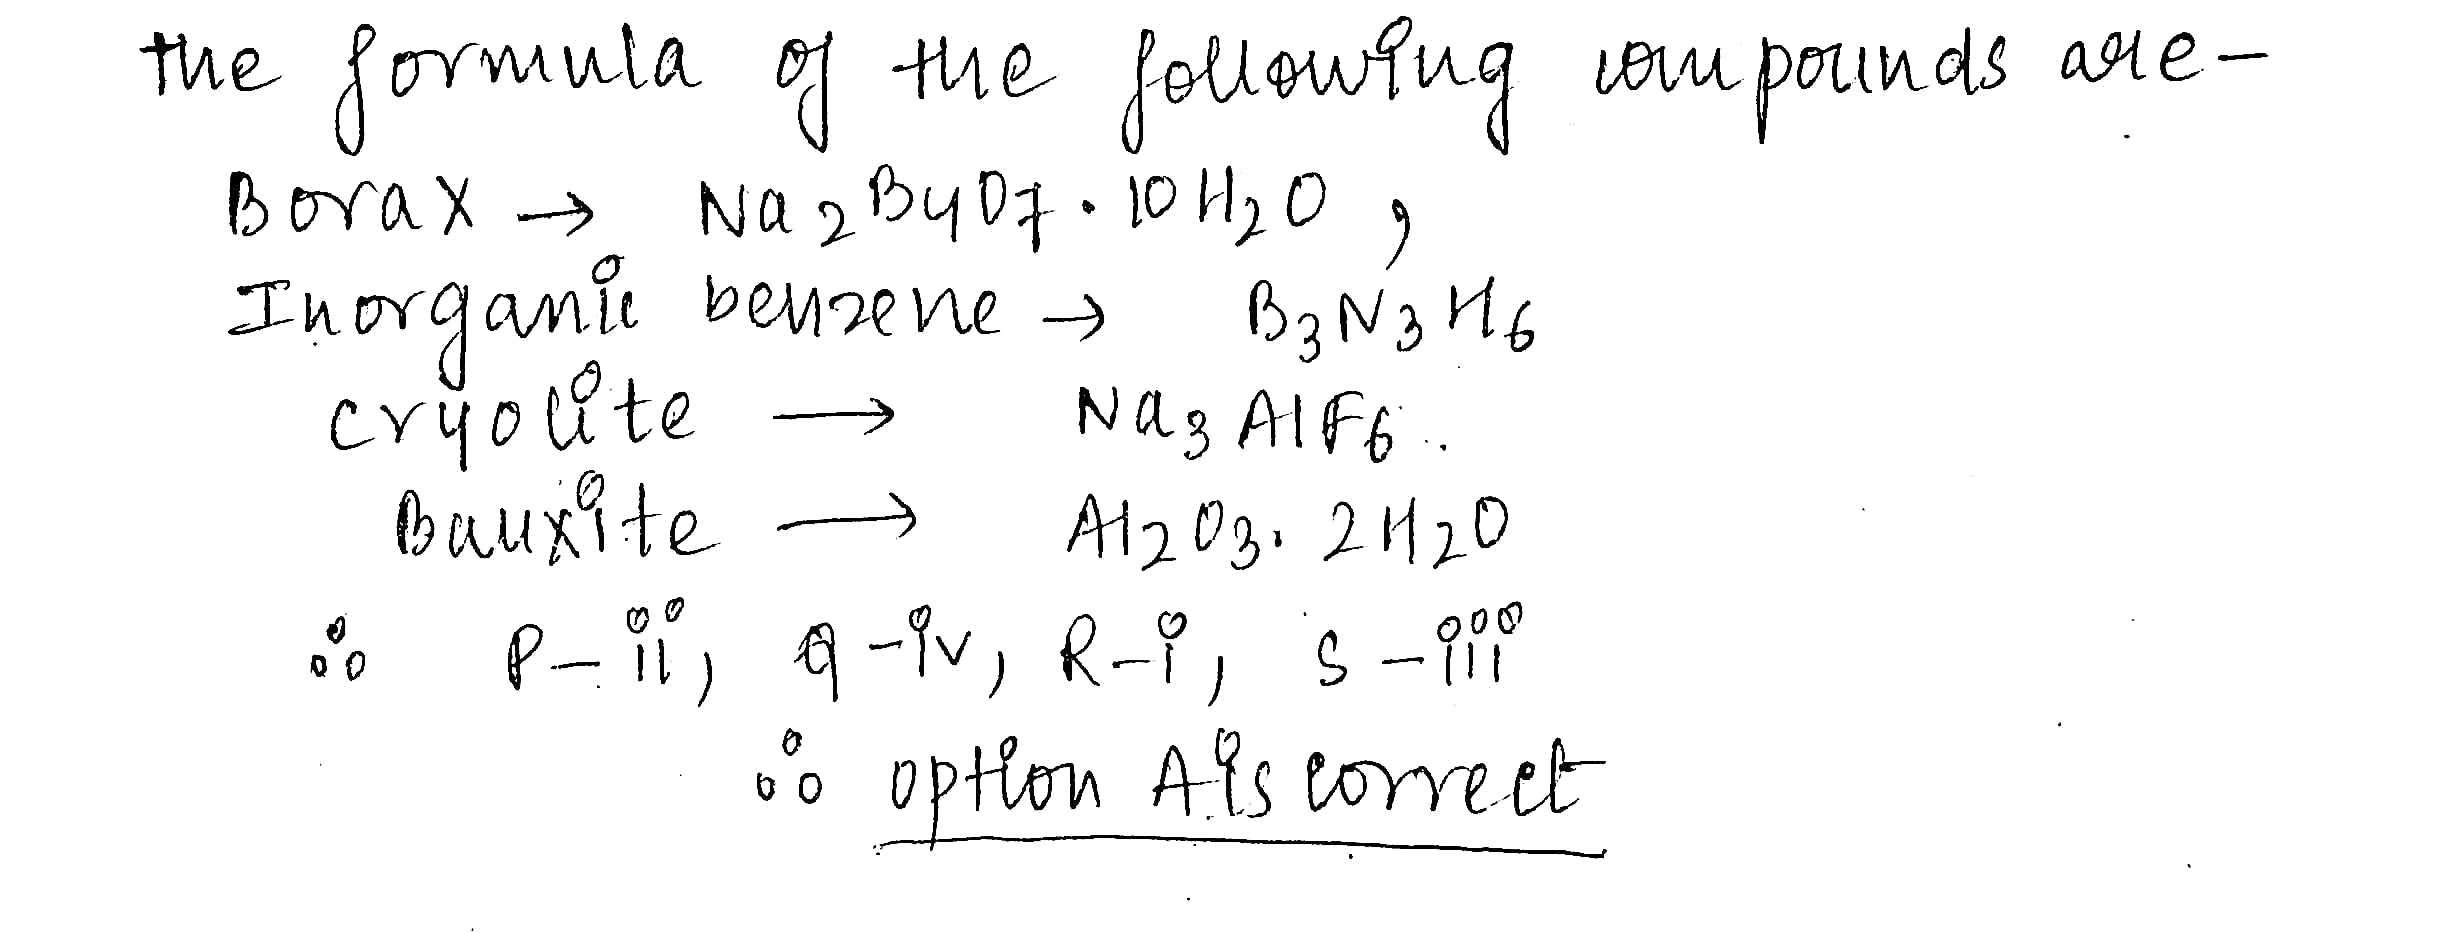 the formula of the following compounds are-
Borax → Na2B4O7·10H2O,
Inorganic benzene → B3N3H6
cryolite → Na3AlF6.
Bauxite → Al2O3·2H2O
∴ P-ii, q-iv, R-i, S-iii
∴ option A is correct